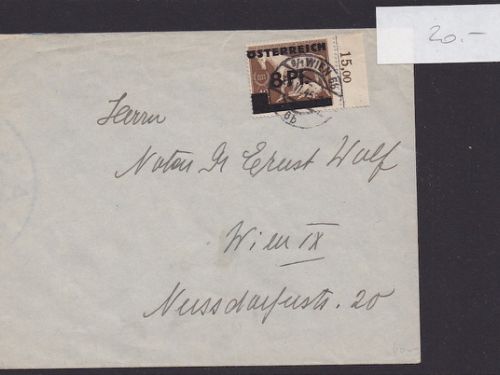 20.-
ÖSTERREICH
8 Pf.
15,00
WIEN
Herrn
Notar Dr Ernst Wolf
Wien IX
Nussdorferstr. 20